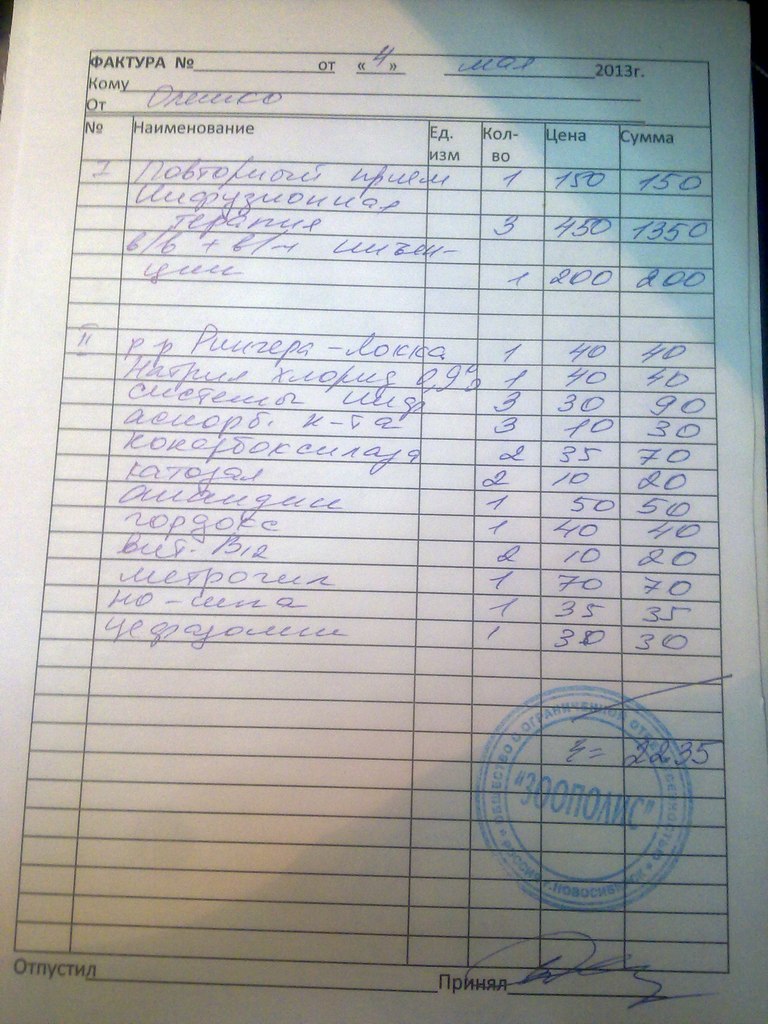 ФАКТУРА № от «4» мая 2013г.
Кому
От Олешко
№ Наименование Ед. изм Кол-во Цена Сумма
I Повторный прием 1 150 150
Инфузионная
терапия 3 450 1350
в/в + в/м инъек-
ции 1 200 200
II р-р Рингера-Локка 1 40 40
Натрия хлорид 0,9% 1 40 40
системы инф 3 30 90
аскорб. к-та 3 10 30
кокарбоксилаза 2 35 70
катозал 2 10 20
1 50 50
гордокс 1 40 40
вит. B12 2 10 20
метрогил 1 70 70
но-шпа 1 35 35
цефазолин 1 30 30
Σ= 2235
ОБЩЕСТВО С ОГРАНИЧЕННОЙ ОТВЕТСТВЕННОСТЬЮ
"ЗООПОЛИС"
РОССИЯ Г. НОВОСИБИРСК
Отпустил Принял